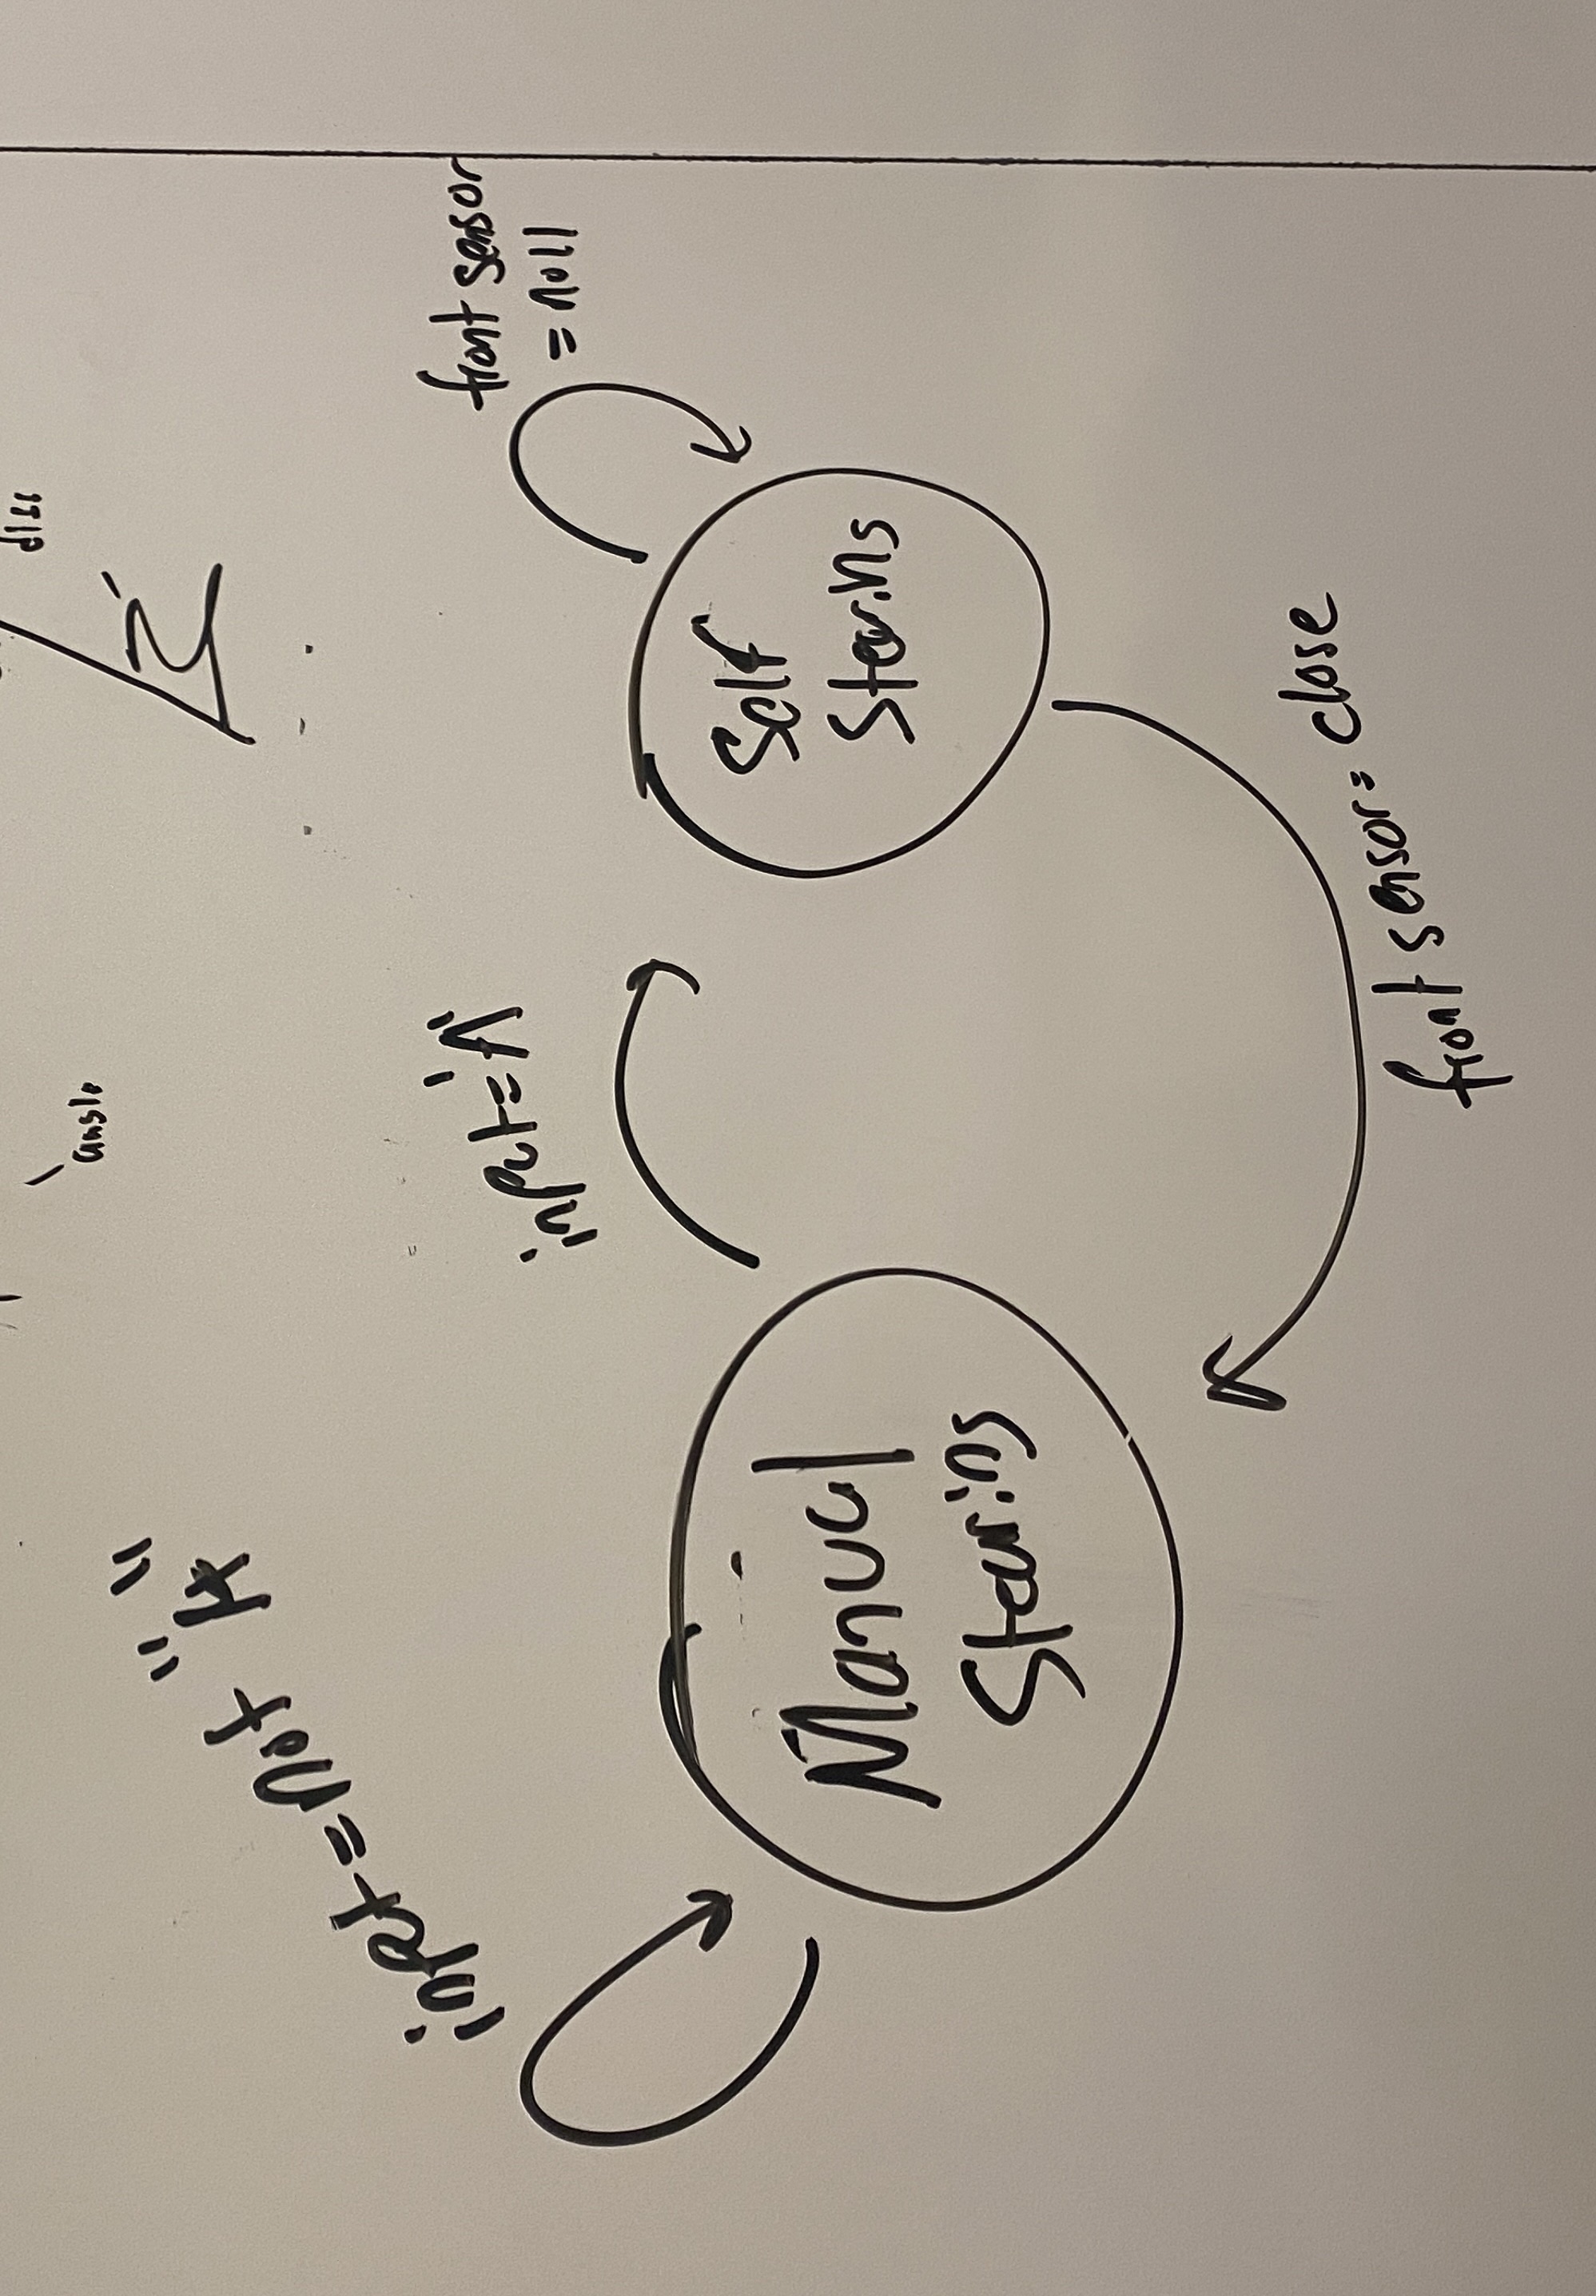 angle
input = not "A"
input = 'A'
front sensor
= null
Manual
Stearing
Self
Stearing
front sensor = close